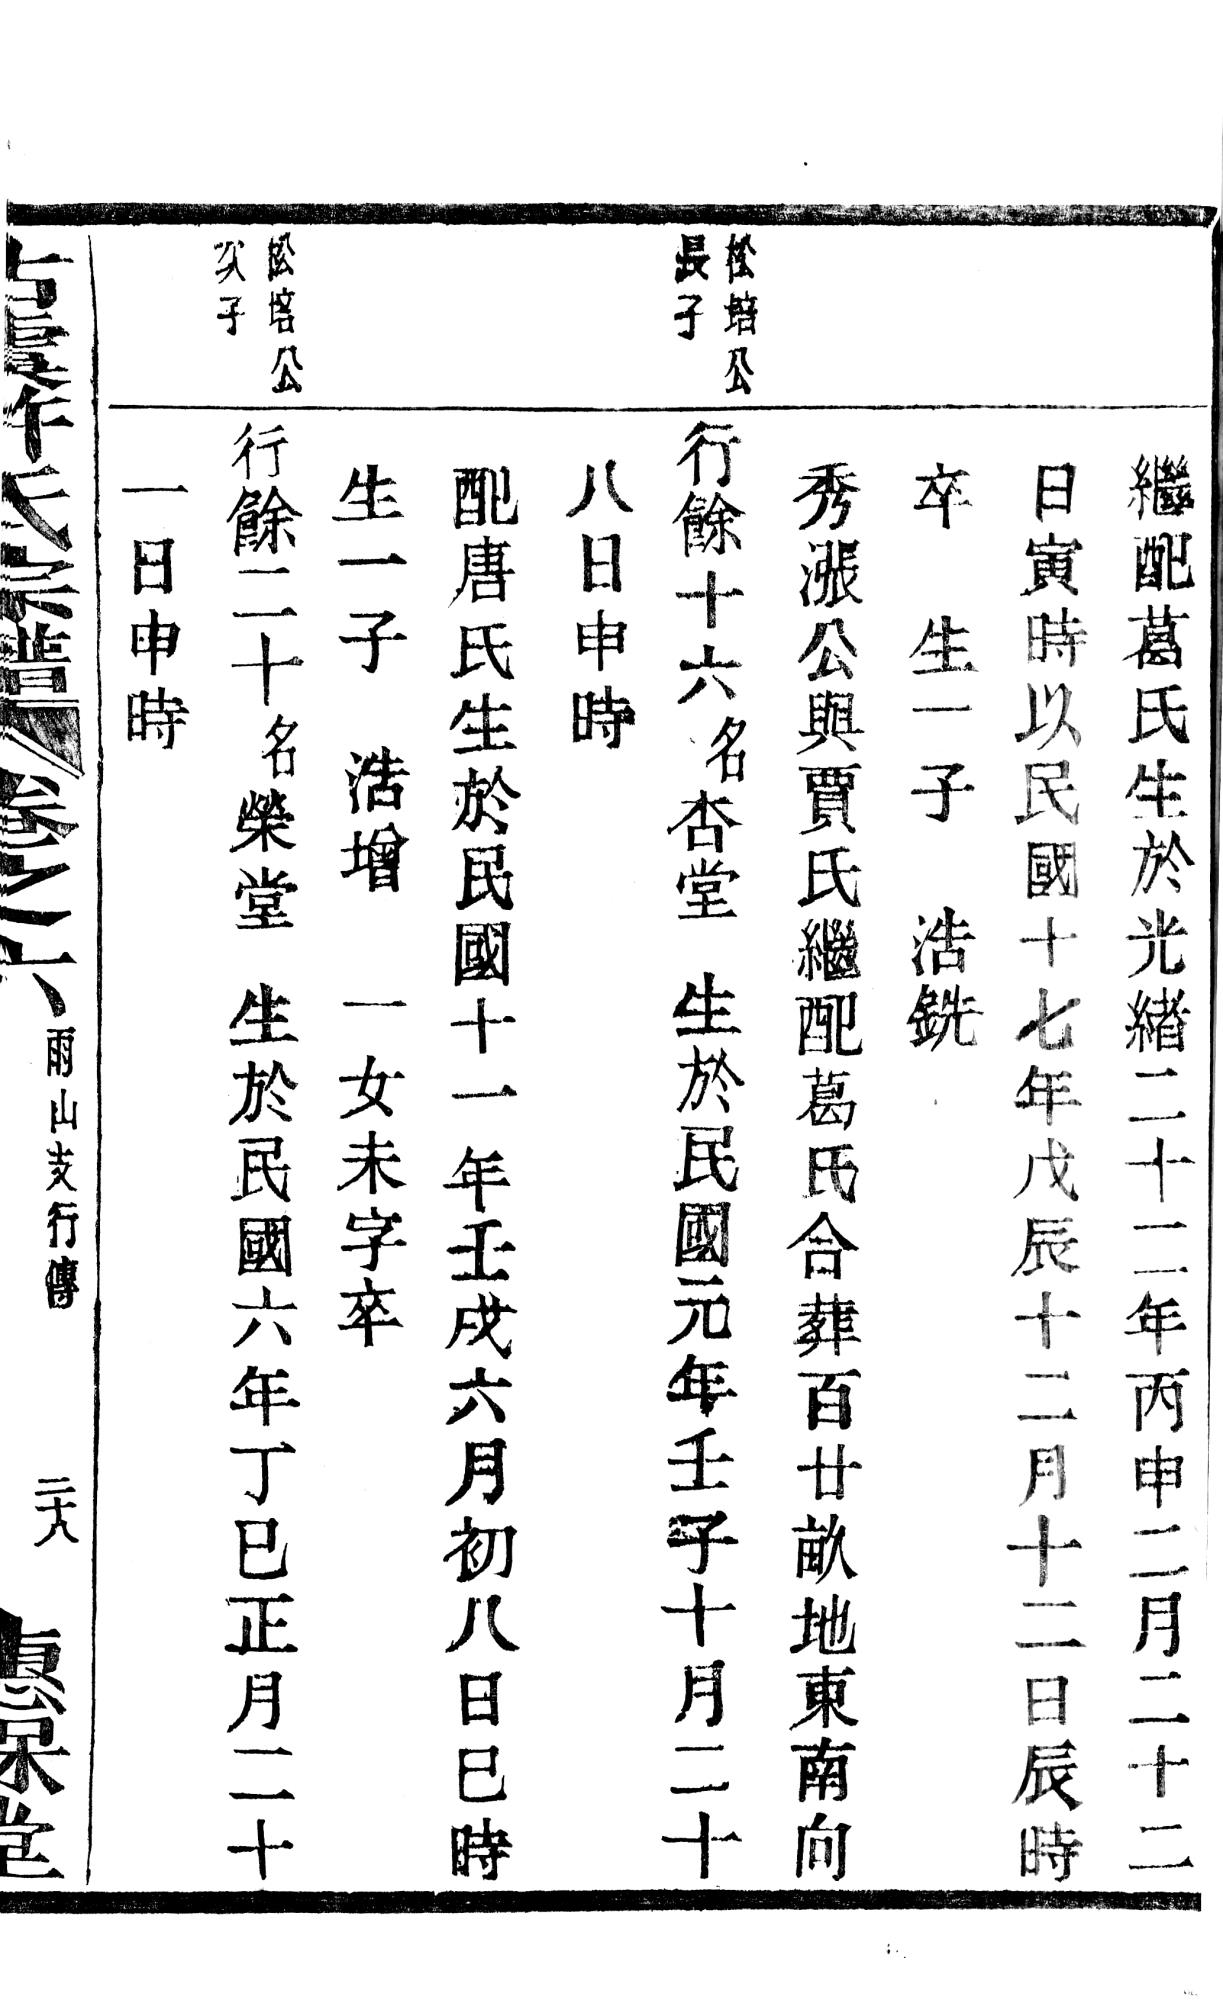 繼配葛氏生於光緒二十二年丙申二月二十二
日寅時以民國十七年戊辰十二月十二日辰時
卒 生一子 浩銑
秀漲公與賈氏繼配葛氏合葬百廿畝地東南向
松培公
長子
行餘十六名杏堂 生於民國元年壬子十月二十
八日申時
配唐氏生於民國十一年壬戌六月初八日巳時
生一子 浩增 一女未字卒
松培公
次子
行餘二十名榮堂 生於民國六年丁巳正月二十
一日申時
古虞許氏宗譜 卷之六 雨山支行傳 二十八 惠保堂